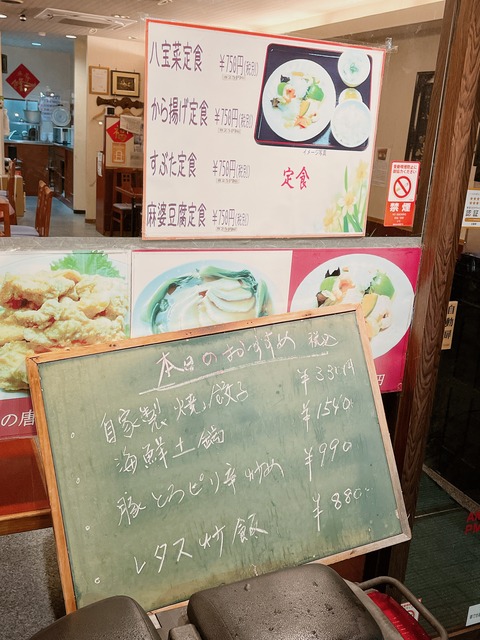 八宝菜定食 ¥750円(税別)
から揚げ定食 ¥750円(税別)
すぶた定食 ¥750円(税別)
麻婆豆腐定食 ¥750円(税別)
イメージ写真
定食
禁煙
認証
自動
の唐
円
本日のおすすめ 税込
自家製 焼き餃子 ¥330
海鮮土鍋 ¥1540
豚とろピリ辛炒め ¥990
レタス炒飯 ¥880